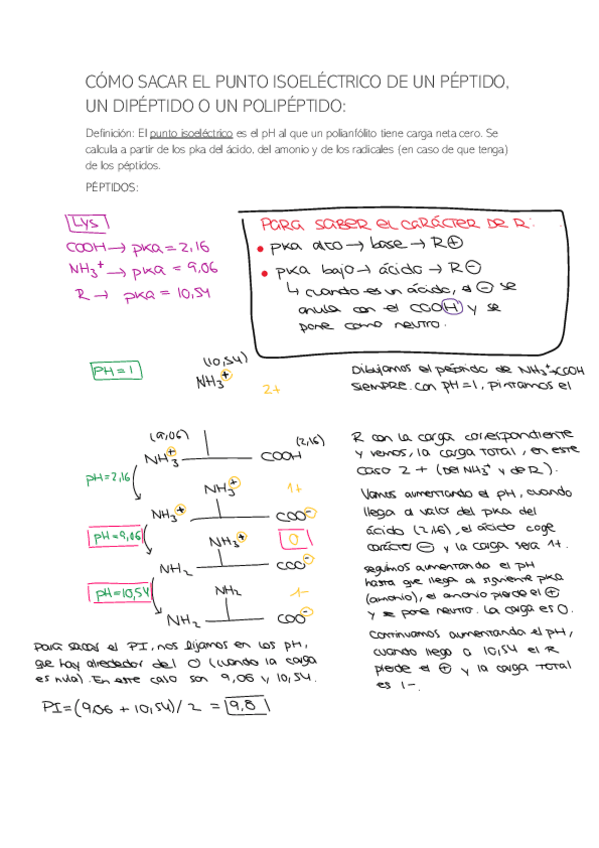 CÓMO SACAR EL PUNTO ISOELÉCTRICO DE UN PÉPTIDO,
UN DIPÉPTIDO O UN POLIPÉPTIDO:
Definición: El punto isoeléctrico es el pH al que un polianfólito tiene carga neta cero. Se
calcula a partir de los pka del ácido, del amonio y de los radicales (en caso de que tenga)
de los péptidos.
PÉPTIDOS:
Lys
COOH → pka = 2,16
NH3+ → pka = 9,06
R → pka = 10,54
PARA SABER EL CARÁCTER DE R:
• pka alto → base → R⊕
• pka bajo → ácido → R⊖
↳ cuando es un ácido, el ⊖ se
anula con el COOH y se
pone como neutro.
PH = 1
(10,54)
NH3+
2+
Dibujamos el péptido de NH3+→COOH
siempre. con pH=1, pintamos el
(9,06)
(2,16)
NH3+
COOH
R con la carga correspondiente
y vemos, la carga TOTAL, en este
caso 2+ (Del NH3+ y de R).
pH=2,16
NH3+
1+
NH3+
COO-
Vamos aumentando el pH, cuando
llega al valor del pka del
ácido (2,16), el ácido coge
carácter ⊖ y la carga será 1+.
pH=9,06
NH3+
0
NH2
COO-
seguimos aumentando el pH
hasta que llega al siguiente pka
(amonio), el amonio pierde el ⊕
y se pone neutro. La carga es 0.
pH=10,54
NH2
1-
NH2
COO-
Continuamos aumentando el pH,
cuando llego a 10,54 el R
pierde el ⊕ y la carga TOTAL
es 1-.
Para sacar el PI, nos fijamos en los pH,
que hay alrededor del 0 (cuando la carga
es nula). En este caso son 9,06 y 10,54.
PI = (9,06 + 10,54)/2 = 9,8